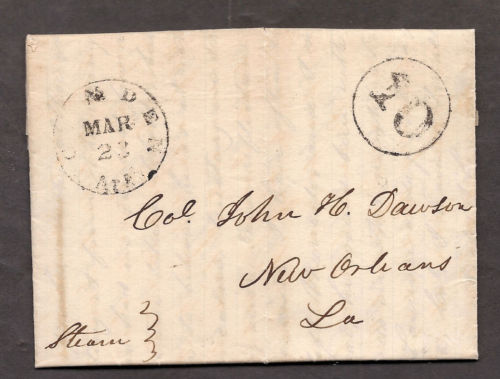 CAMDEN
MAR
23
Ark.
10
Col. John H. Dawson
New Orleans
La
Steam